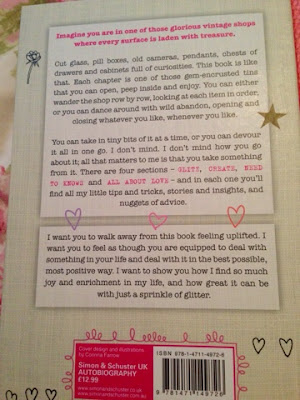 Imagine you are in one of those glorious vintage shops
where every surface is laden with treasure.
Cut glass, pill boxes, old cameras, pendants, chests of
drawers and cabinets full of curiosities. This book is like
that. Each chapter is one of those gem-encrusted tins
that you can open, peep inside and enjoy. You can either
wander the shop row by row, looking at each item in order,
or you can dance around with wild abandon, opening and
closing whatever you like, whenever you like.
You can take in tiny bits of it at a time, or you can devour
it all in one go. I don't mind. I don't mind how you go
about it; all that matters to me is that you take something
from it. There are four sections – GLITZ, CREATE, NEED
TO KNOWS and ALL ABOUT LOVE – and in each one you'll
find all my little tips and tricks, stories and insights, and
nuggets of advice.
I want you to walk away from this book feeling uplifted. I
want you to feel as though you are equipped to deal with
something in your life and deal with it in the best possible,
most positive way. I want to show you how I find so much
joy and enrichment in my life, and how great it can be
with just a sprinkle of glitter.
Cover design and illustrations
by Corinna Farrow
Simon & Schuster UK
AUTOBIOGRAPHY
£12.99
www.simonandschuster.co.uk
ISBN 978-1-4711-4972-6
9 781471 149726